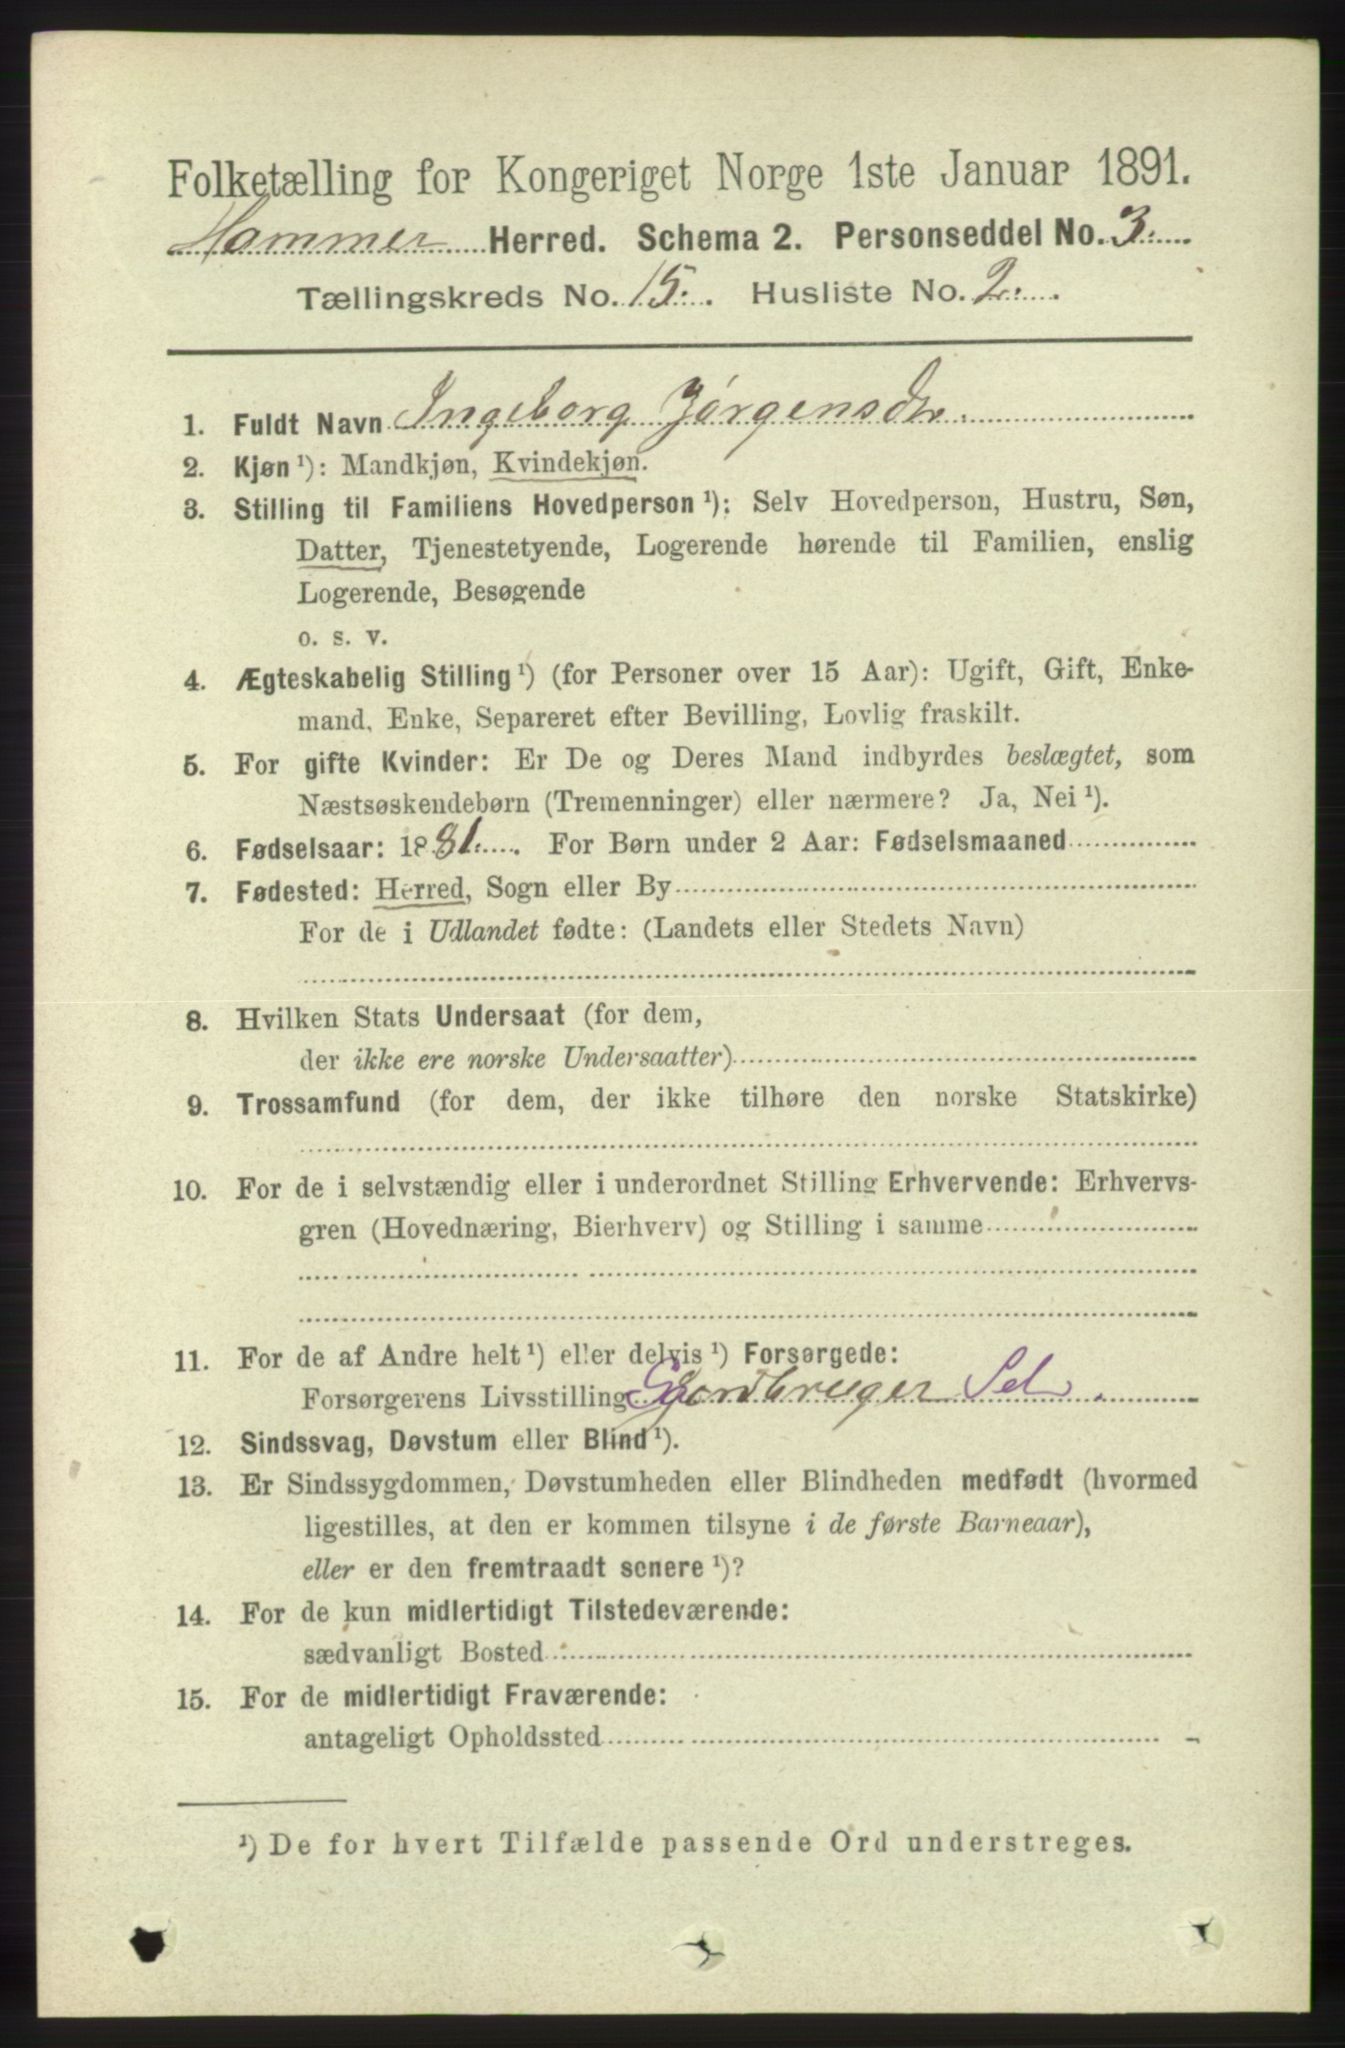 Folketælling for Kongeriget Norge 1ste Januar 1891.
Hammer Herred. Schema 2. Personseddel No. 3.
Tællingskreds No. 15. Husliste No. 2.
1. Fuldt Navn Ingeborg Jørgensdtr.
2. Kjøn ¹): Mandkjøn, Kvindekjøn.
3. Stilling til Familiens Hovedperson ¹): Selv Hovedperson, Hustru, Søn,
Datter, Tjenestetyende, Logerende hørende til Familien, enslig
Logerende, Besøgende
o. s. v.
4. Ægteskabelig Stilling ¹) (for Personer over 15 Aar): Ugift, Gift, Enke-
mand, Enke, Separeret efter Bevilling, Lovlig fraskilt.
5. For gifte Kvinder: Er De og Deres Mand indbyrdes beslægtet, som
Næstsøskendebørn (Tremenninger) eller nærmere? Ja, Nei ¹).
6. Fødselsaar: 1881. For Børn under 2 Aar: Fødselsmaaned
7. Fødested: Herred, Sogn eller By
For de i Udlandet fødte: (Landets eller Stedets Navn)
8. Hvilken Stats Undersaat (for dem,
der ikke ere norske Undersaatter)
9. Trossamfund (for dem, der ikke tilhøre den norske Statskirke)
10. For de i selvstændig eller i underordnet Stilling Erhvervende: Erhvervs-
gren (Hovednæring, Bierhverv) og Stilling i samme
11. For de af Andre helt ¹) eller delvis ¹) Forsørgede:
Forsørgerens Livsstilling Gaardbruger Sel.
12. Sindssvag, Døvstum eller Blind ¹).
13. Er Sindssygdommen, Døvstumheden eller Blindheden medfødt (hvormed
ligestilles, at den er kommen tilsyne i de første Barneaar),
eller er den fremtraadt senere ¹)?
14. For de kun midlertidigt Tilstedeværende:
sædvanligt Bosted
15. For de midlertidigt Fraværende:
antageligt Opholdssted
¹) De for hvert Tilfælde passende Ord understreges.